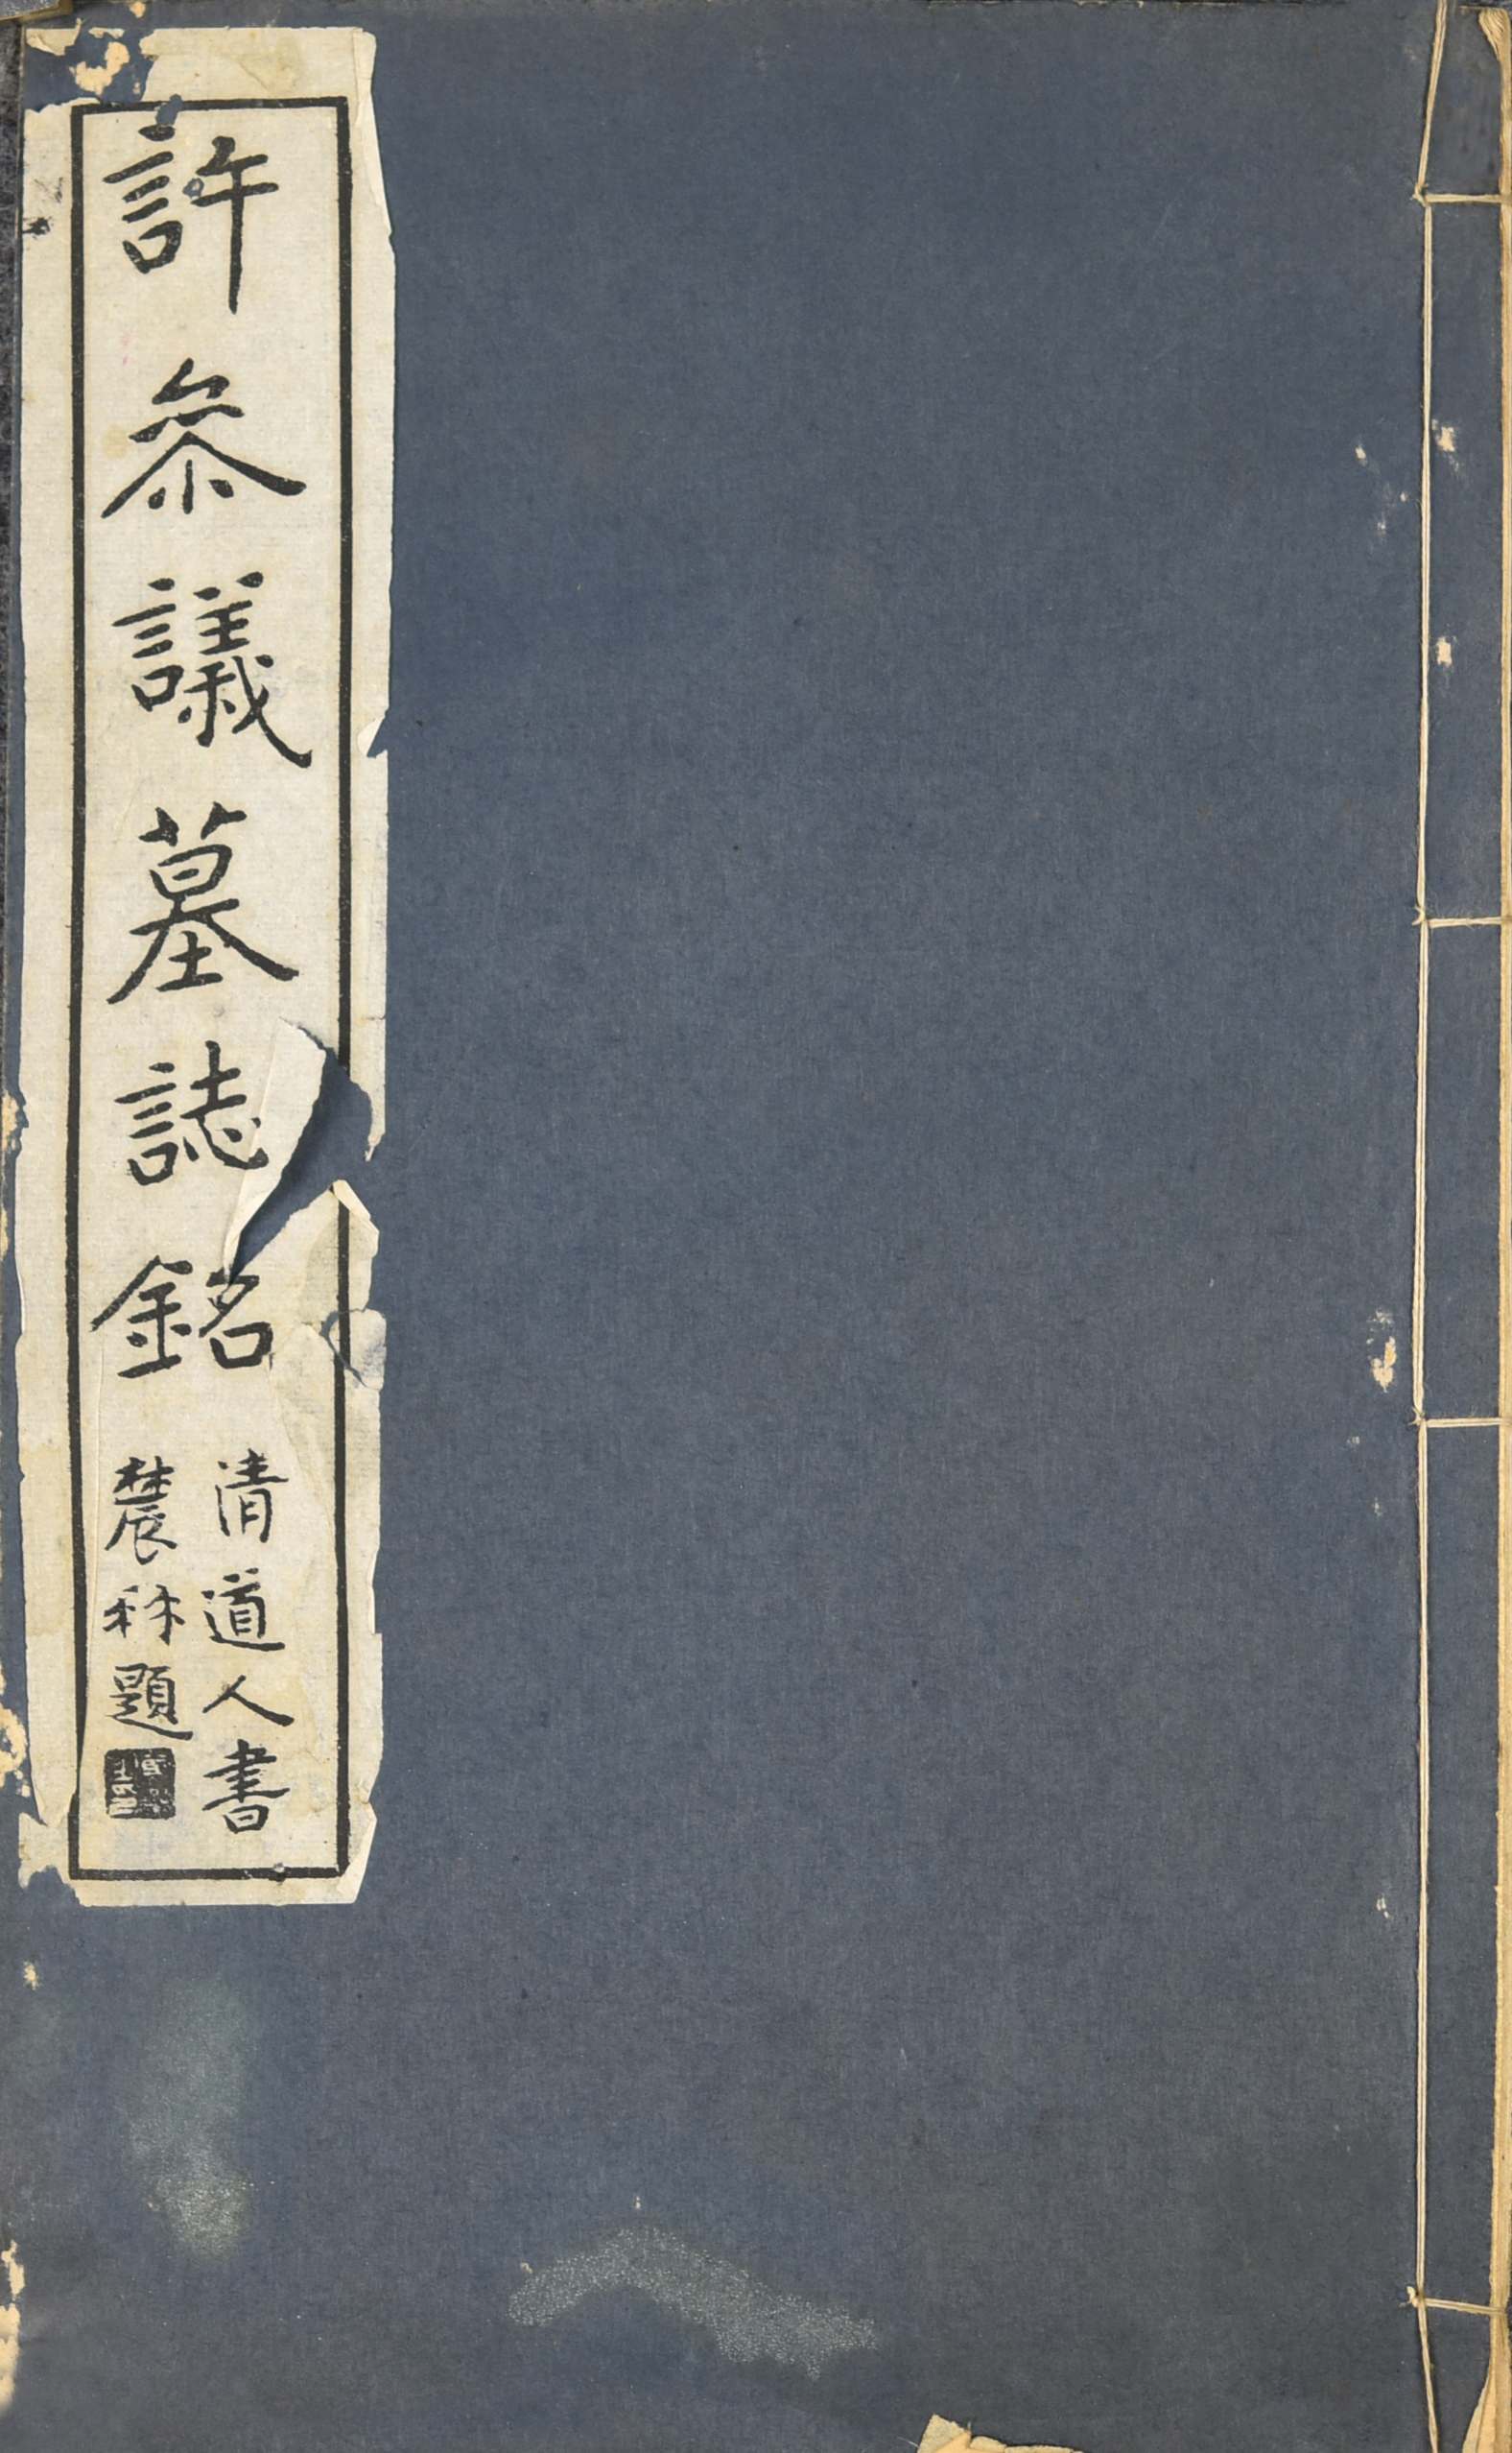 許叅議墓誌銘
清道人書
農秝題